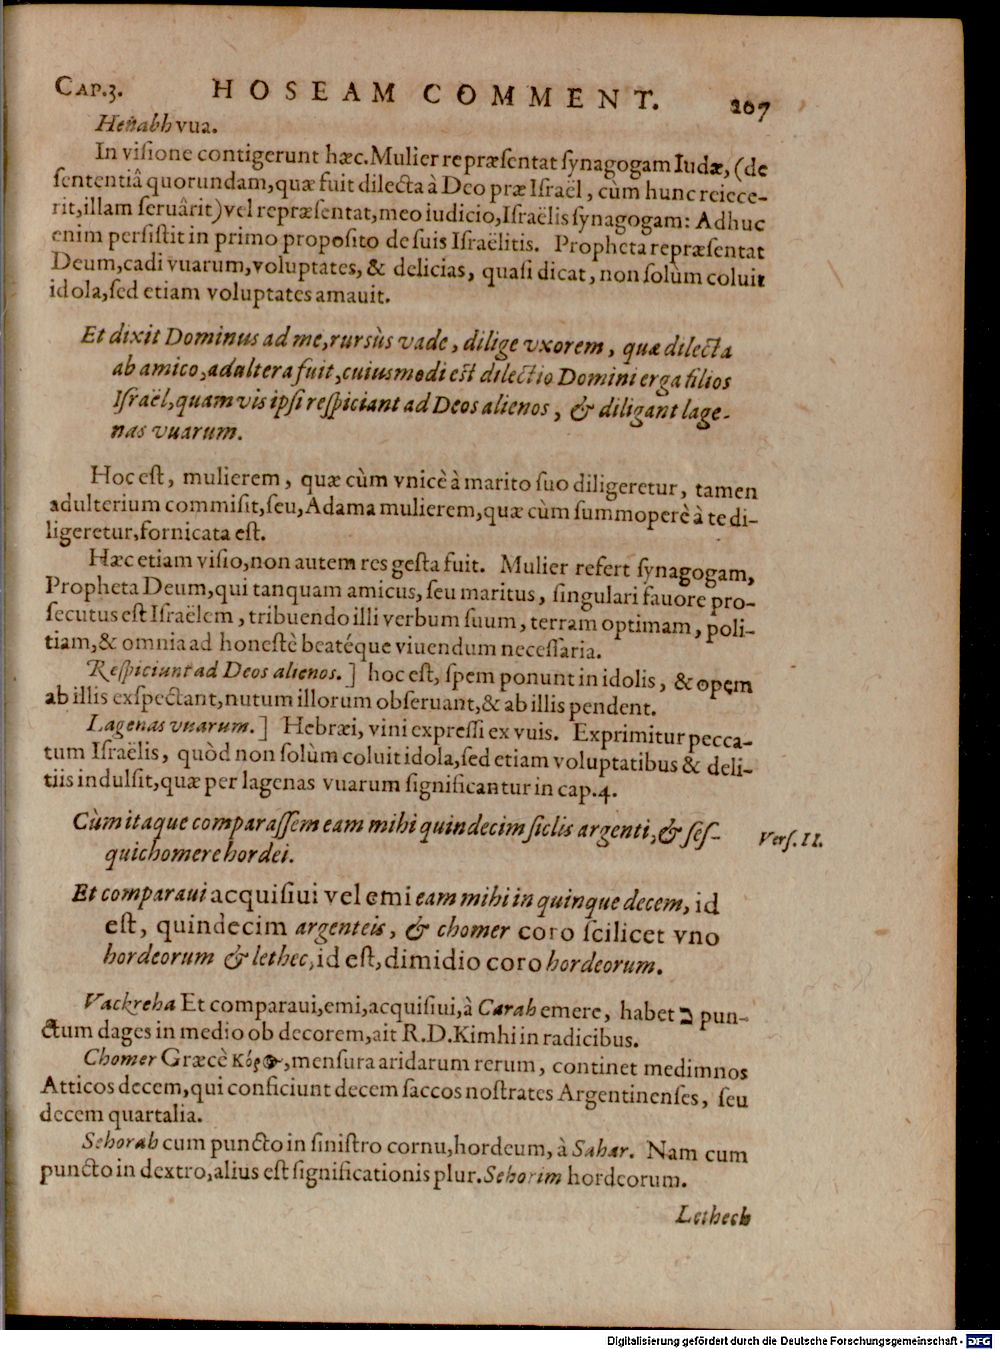 CAP.3. HOSEAM COMMENT. 207
Henabh vua.
In visione contigerunt hæc. Mulier repræsentat synagogam Iudæ, (de
sententiâ quorundam, quæ fuit dilecta à Deo præ Israël, cùm hunc reiece-
rit, illam seruârit) vel repræsentat, meo iudicio, Israëlis synagogam: Adhuc
enim persistit in primo proposito de suis Israëlitis. Propheta repræsentat
Deum, cadi vuarum, voluptates, & delicias, quasi dicat, non solùm coluit
idola, sed etiam voluptates amauit.
Et dixit Dominus ad me, rursùs vade, dilige vxorem, quæ dilecta
ab amico, adultera fuit, cuiusmodi est dilectio Domini erga filios
Israël, quamvis ipsi respiciant ad Deos alienos, & diligant lage-
nas vuarum.
Hoc est, mulierem, quæ cùm vnicè à marito suo diligeretur, tamen
adulterium commisit, seu, Adama mulierem, quæ cùm summoperè à te di-
ligeretur, fornicata est.
Hæc etiam visio, non autem res gesta fuit. Mulier refert synagogam,
Propheta Deum, qui tanquam amicus, seu maritus, singulari fauore pro-
secutus est Israëlem, tribuendo illi verbum suum, terram optimam, poli-
tiam, & omnia ad honestè beatéque viuendum necessaria.
Respiciunt ad Deos alienos. ] hoc est, spem ponunt in idolis, & opem
ab illis exspectant, nutum illorum obseruant, & ab illis pendent.
Lagenas vuarum. ] Hebræi, vini expressi ex vuis. Exprimitur pecca-
tum Israëlis, quòd non solùm coluit idola, sed etiam voluptatibus & deli-
tiis indulsit, quæ per lagenas vuarum significantur in cap.4.
Cùm itaque comparassem eam mihi quindecim siclis argenti, & ses- Vers. II.
quichomere hordei.
Et comparaui acquisiui vel emi eam mihi in quinque decem, id
est, quindecim argenteis, & chomer coro scilicet vno
hordeorum & lethec, id est, dimidio coro hordeorum.
Vackreha Et comparaui, emi, acquisiui, à Carah emere, habet כ pun-
ctum dages in medio ob decorem, ait R.D. Kimhi in radicibus.
Chomer Græcè Κόρος, mensura aridarum rerum, continet medimnos
Atticos decem, qui conficiunt decem saccos nostrates Argentinenses, seu
decem quartalia.
Sehorah cum puncto in sinistro cornu, hordeum, à Sahar. Nam cum
puncto in dextro, alius est significationis plur. Sehorim hordeorum.
Lethech
Digitalisierung gefördert durch die Deutsche Forschungsgemeinschaft - DFG